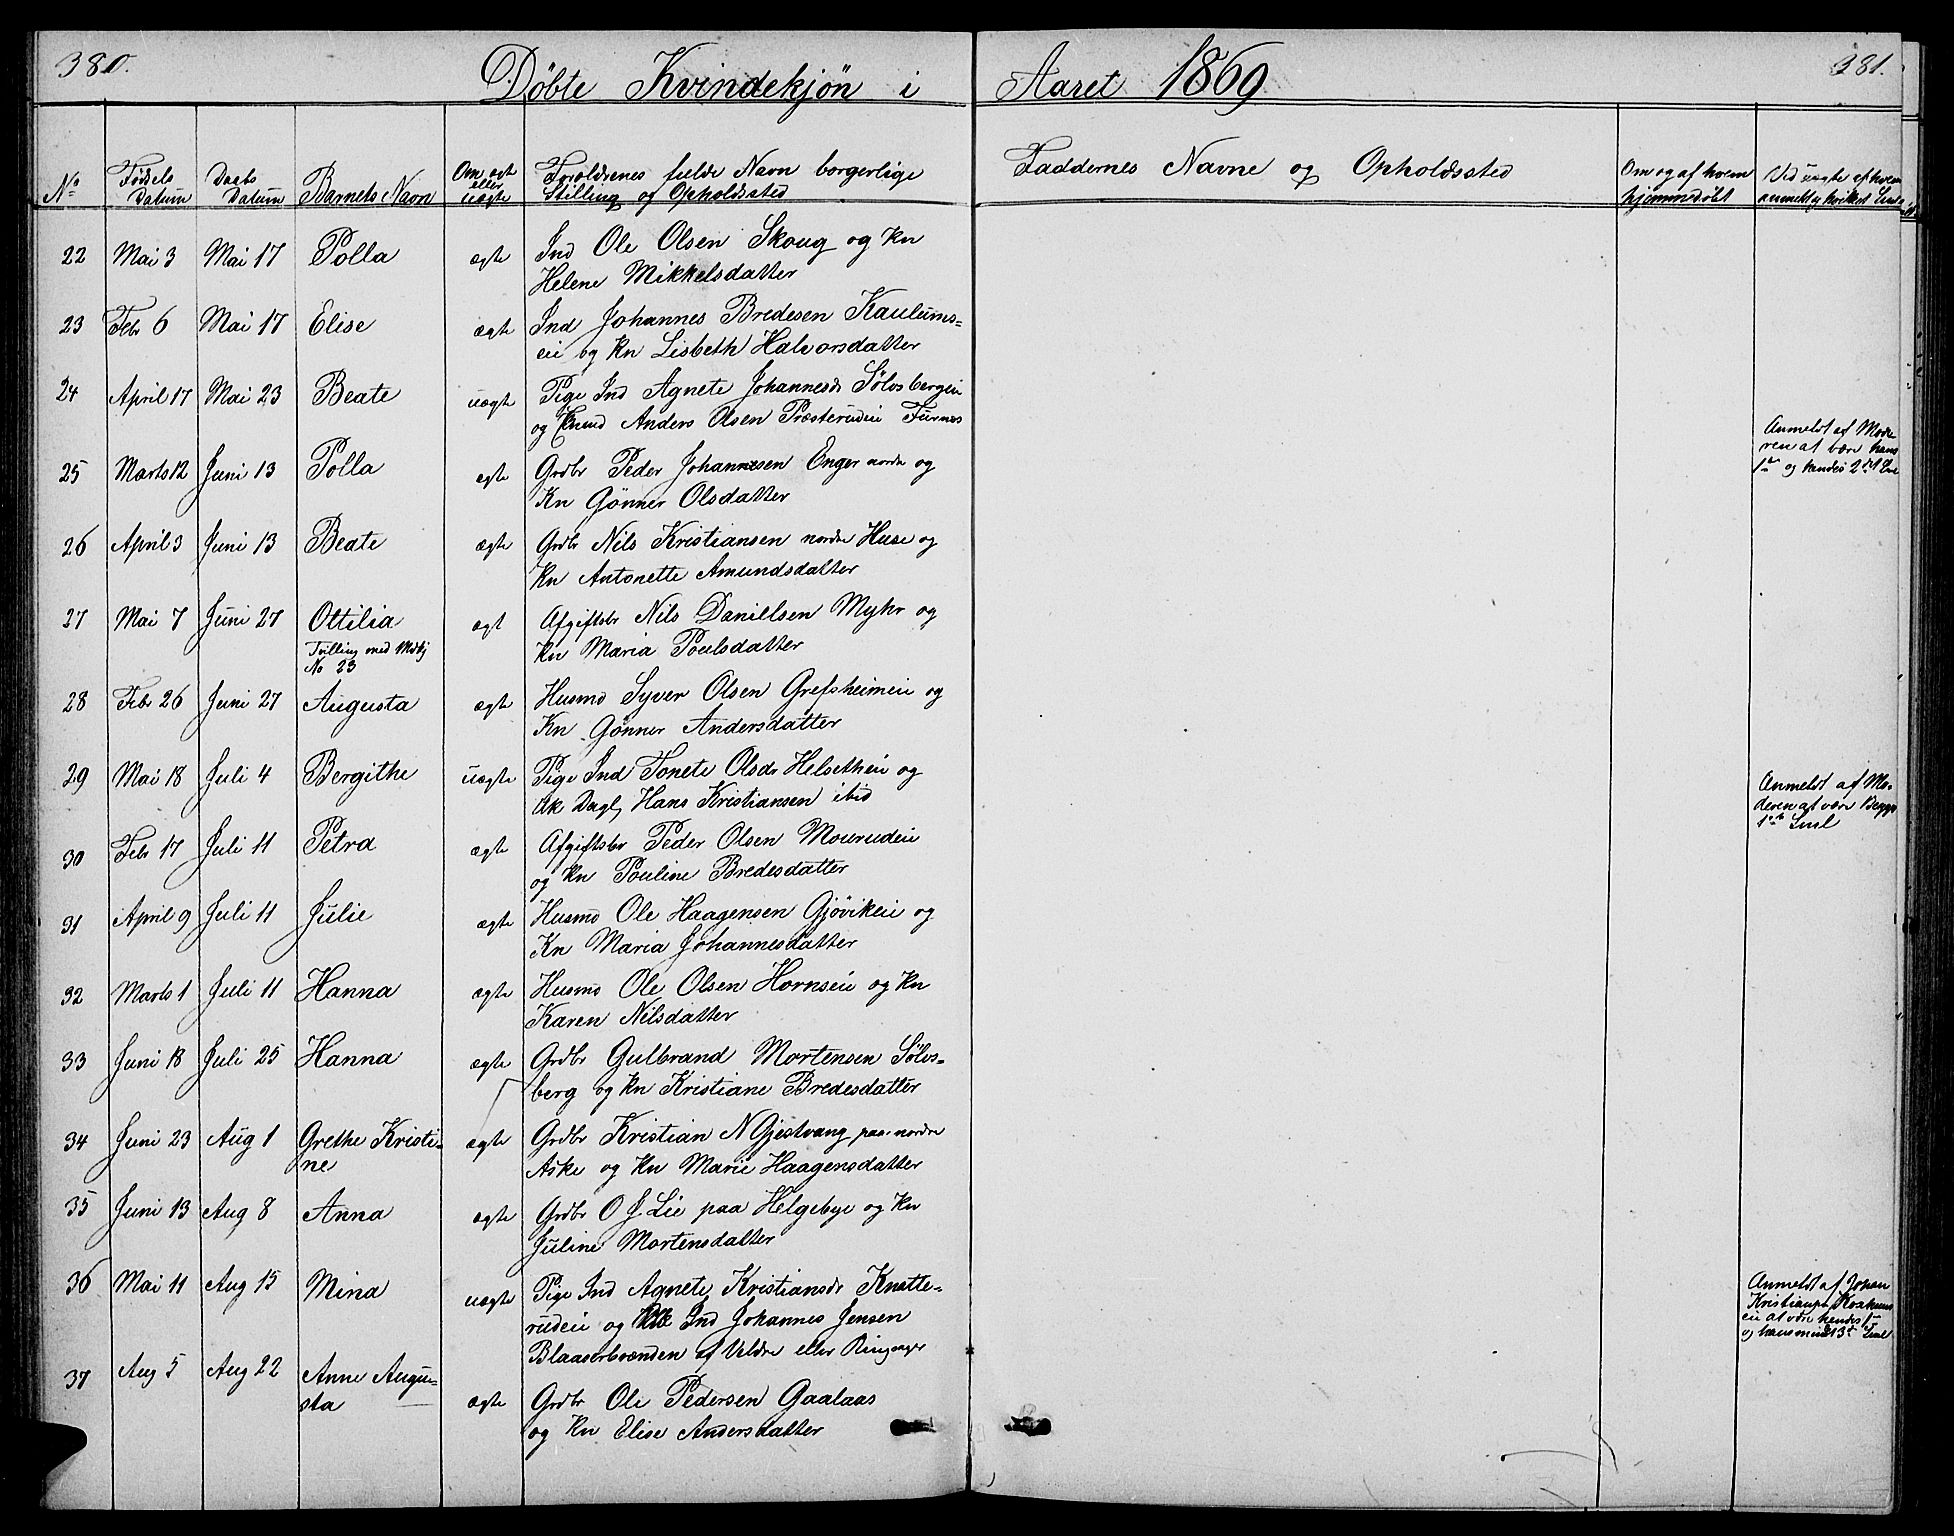 380.
Döbte Kvindekjön i Aaret 1869
381.
No
Fødsels Datum
Daabs Datum
Barnets Navn
Om ægt eller uægte
Foreldrenes fulde Navn borgerlige Stilling og Opholdssted
Faddernes Navne og Opholdssted
Om og af hvem hjemmedöbt
Ved uægte af hvem anmeldt og hvilket
22 Mai 3 Mai 17 Polla ægte Ind Ole Olsen Skoug og Kn
Helene Mikkelsdatter
23 Febr 6 Mai 17 Elise ægte Ind Johannes Bredesen Kaulums=
eie og Kn Lisbeth Halvorsdatter
24 April 17 Mai 23 Beate uægte Pige Ind Agnete Johannesdr Sölvsbergeie
og Anders Olsen Præsterudeie Furnes
Anmeldt af Mode
ren at være hans
1ste og hendes 2det
25 Marts 12 Juni 13 Polla ægte Grdbr Peder Johannesen Enger nordre og
Kn Gönner Olsdatter
26 April 3 Juni 13 Beate ægte Grdbr Nils Kristiansen nordre Huse og
Kn Antonette Amundsdatter
27 Mai 7 Juni 27 Ottilia ægt Afgiftsbr Nils Danillsen Myhr og
Tvilling med Mdkj
No 23
Kn Maria Poulsdatter
28 Febr 26 Juni 27 Augusta ægte Husmd Syver Olsen Grefsheimeie og
Kn Gönner Andersdatter
29 Mai 18 Juli 4 Bergithe uægte Pige Ind Tonete Olsdr Helsetheie og
Uk Dagl, Hans Kristiansen ibid
Anmeldt af Mo=
deren at være Begges
1ste
30 Febr 17 Juli 11 Petra ægte Afgiftsbr Peder Olsen Mourudeie
og Kn Pouline Bredesdatter
31 April 9 Juli 11 Julie ægte Husmd Ole Haagensen Gjövikeie og
Kn Maria Johannesdatter
32 Marts 1 Juli 11 Hanna ægte Husmd Ole Olsen Hornseie og Kn
Karen Nilsdatter
33 Juni 18 Juli 25 Hanna ægte Grdbr Gulbrand Mortensen Sölvs=
berg og Kn Kristiane Bredesdatter
34 Juni 23 Aug 1 Grethe Kristi=
ne
ægte Grdbr Kristian N Gjestvang paa nordre
Aske og Kn Marie Haagensdatter
35 Juni 13 Aug 8 Anna ægte Grdbr O J Lie paa Helgebye og Kn
Juline Mortensdatter
36 Mai 11 Aug 15 Mina uægte Pige Ind Agnete Kristiansdr Knatte=
rudeie og Ind Johannes Jensen
Blaaserbrænden af Veldre eller Ringsager
Anmeldt af Johan
eie at være hendes 1ste
og hans mindst 3de
37 Aug 5 Aug 22 Anne Augu=
sta
ægte Grdbr Ole Pedersen Gaalaas
og Kn Elise Andersdatter